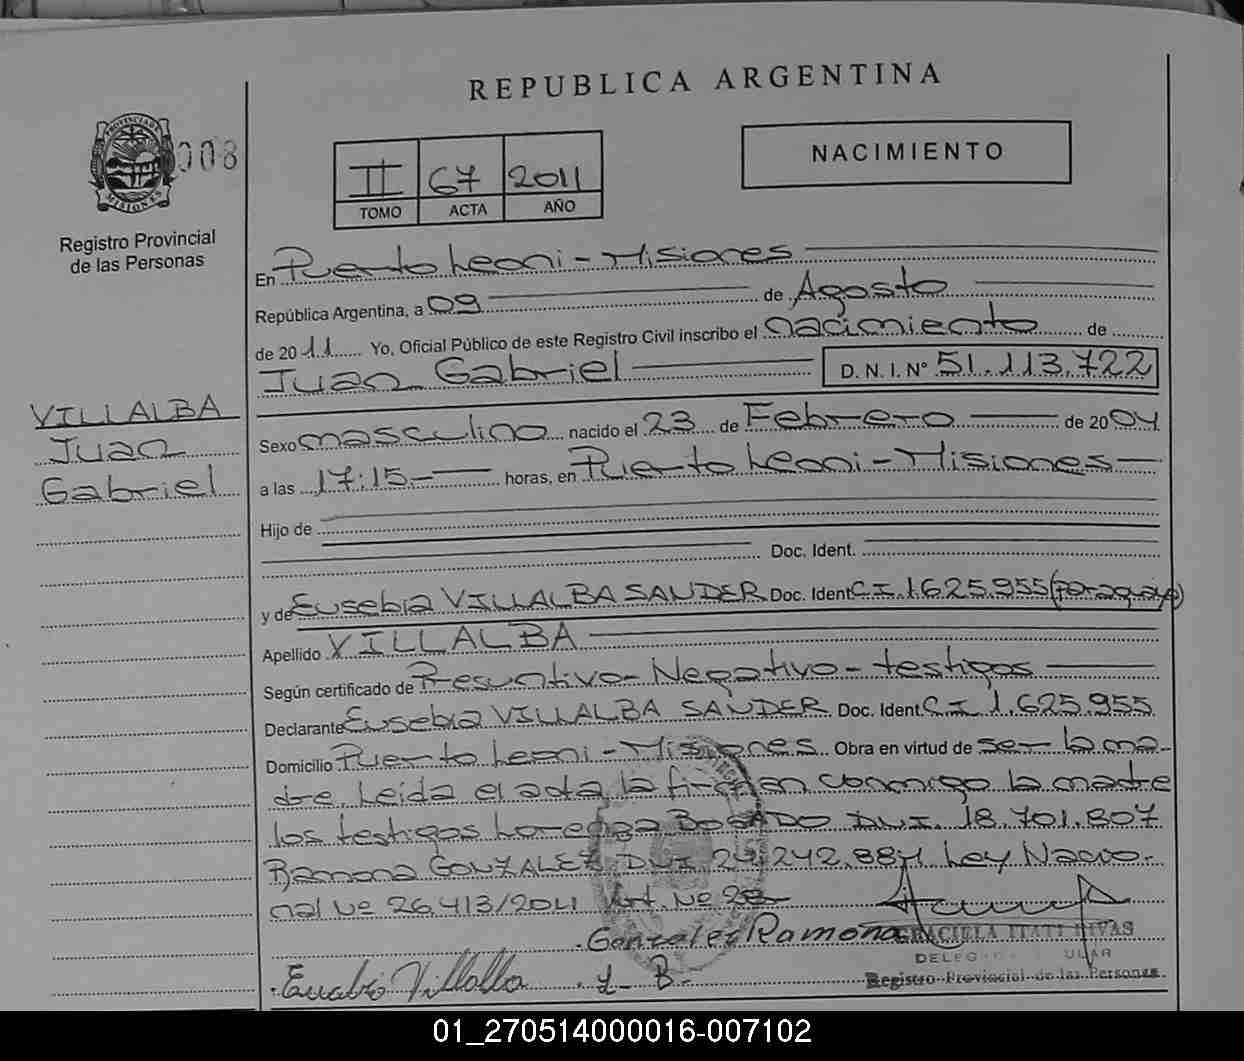 REPUBLICA ARGENTINA
PROVINCIA DE MISIONES
008
Registro Provincial
de las Personas
II 67 2011
TOMO ACTA AÑO
NACIMIENTO
En Puerto Leoni - Misiones
República Argentina, a 09 de Agosto
de 2011 Yo, Oficial Público de este Registro Civil inscribo el nacimiento de
Juan Gabriel D.N.I. N° 51.113.722
VILLALBA
Juan
Gabriel
Sexo masculino nacido el 23 de Febrero de 2004
a las 17:15.- horas, en Puerto Leoni - Misiones
Hijo de
Doc. Ident.
y de Eusebia VILLALBA SANDER Doc. Ident C.I. 1.625.955 (Paraguaya)
Apellido VILLALBA
Según certificado de Presuntivo - Negativo - testigos
Declarante Eusebia VILLALBA SANDER Doc. Ident. C I 1.625.955
Domicilio Puerto Leoni - Misiones Obra en virtud de ser la ma-
dre. Leida el acta la firman conmigo la madre
los testigos Lorenza BOGADO DNI. 18.701.807
Ramona GONZALEZ DNI 24.242.884 Ley Nacio-
nal Nº 26.413/2011 Art. Nº 28
Gonzalez Ramona
GRACIELA ITATI RIVAS
Villalba L B.
Registro Provincial de las Personas
01_270514000016-007102